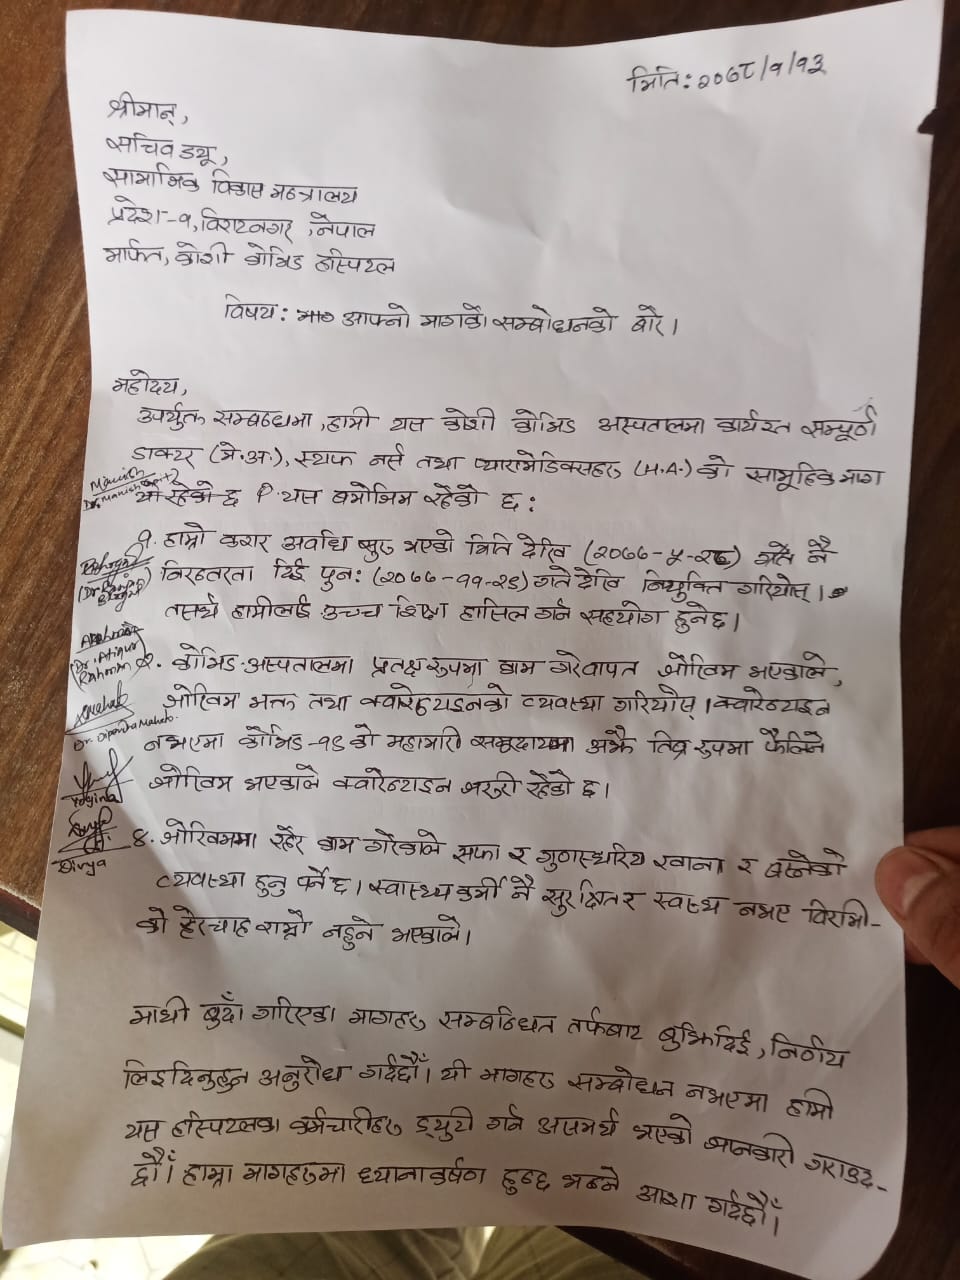 मिति: २०७८/१/१३
श्रीमान्,
सचिव ज्यू,
सामाजिक विकास मन्त्रालय
प्रदेश-१, विराटनगर, नेपाल
मार्फत, कोशी कोभिड हस्पिटल
विषय: आफ्नो मागको सम्बोधनको बारे।
महोदय,
उपर्युक्त सम्बन्धमा, हामी यस कोशी कोभिड अस्पतालमा कार्यरत सम्पूर्ण
डाक्टर (मे.अ.), स्टाफ नर्स तथा प्यारामेडिक्सहरु (H.A.) को सामूहिक माग
यो रहेको छ यस बमोजिम रहेको छ:
Dr. Manish
१. हाम्रो करार अवधि सुरु भएको मिति देखि (२०७७-५-२८) गते नै
निरन्तरता दिई पुन: (२०७७-११-२९) गते देखि नियुक्ति गरियोस्।
तसर्थ हामीलाई उच्च शिक्षा हासिल गर्न सहयोग हुनेछ।
(Dr. Atiqur
Rahman)
२. कोभिड-अस्पतालमा प्रतक्ष रुपमा काम गरेवापत जोखिम भएकाले,
जोखिम भत्ता तथा क्वारेन्टाइनको व्यवस्था गरियोस्। क्वारेन्टाइन
Dr. Dipendra Mahato.
नभएमा कोभिड-१९ को महामारी समुदायमा अझै तिव्र रुपमा फैलिने
जोखिम भएकाले क्वारेन्टाइन जरुरी रहेको छ।
Yogina
Divya
४. जोखिममा रहेर काम गरेकाले सफा र गुणस्थरिय खाना र बस्नेको
व्यवस्था हुनु पर्नेछ। स्वास्थ्यकर्मी नै सुरक्षित र स्वस्थ नभए विरामी-
को हेरचाह राम्रो नहुने भएकाले।
माथी बुँदा गरिएका मागहरु सम्बन्धित तर्फबाट बुझिदिई, निर्णय
लिइदिनुहुन अनुरोध गर्दछौँ। यी मागहरु सम्बोधन नभएमा हामी
यस हस्पिटलका कर्मचारीहरु ड्युटी गर्न असमर्थ भएको जानकारी गराउद-
छौँ। हाम्रा मागहरुमा ध्यानाकर्षण हुन्छ भन्ने आशा गर्दछौँ।